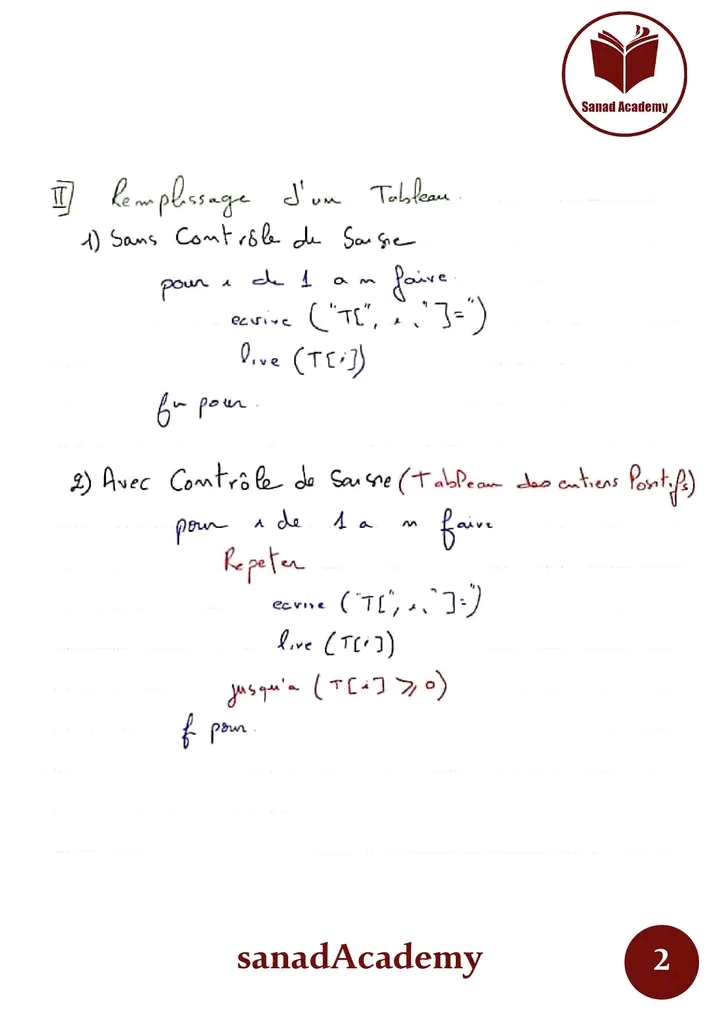 Sanad Academy
II] Remplissage d'un Tableau.
1) Sans Contrôle de Saisie
pour i de 1 a n faire.
ecrire ("T[", i, "]=")
lire (T[i])
fin pour.
2) Avec Contrôle de Saisie (Tableau des entiers Positifs)
pour i de 1 a n faire
Repeter
ecrire ("T[", i, "]=")
lire (T[i])
jusqu'a (T[i] ≥ 0)
f pour.
sanadAcademy
2